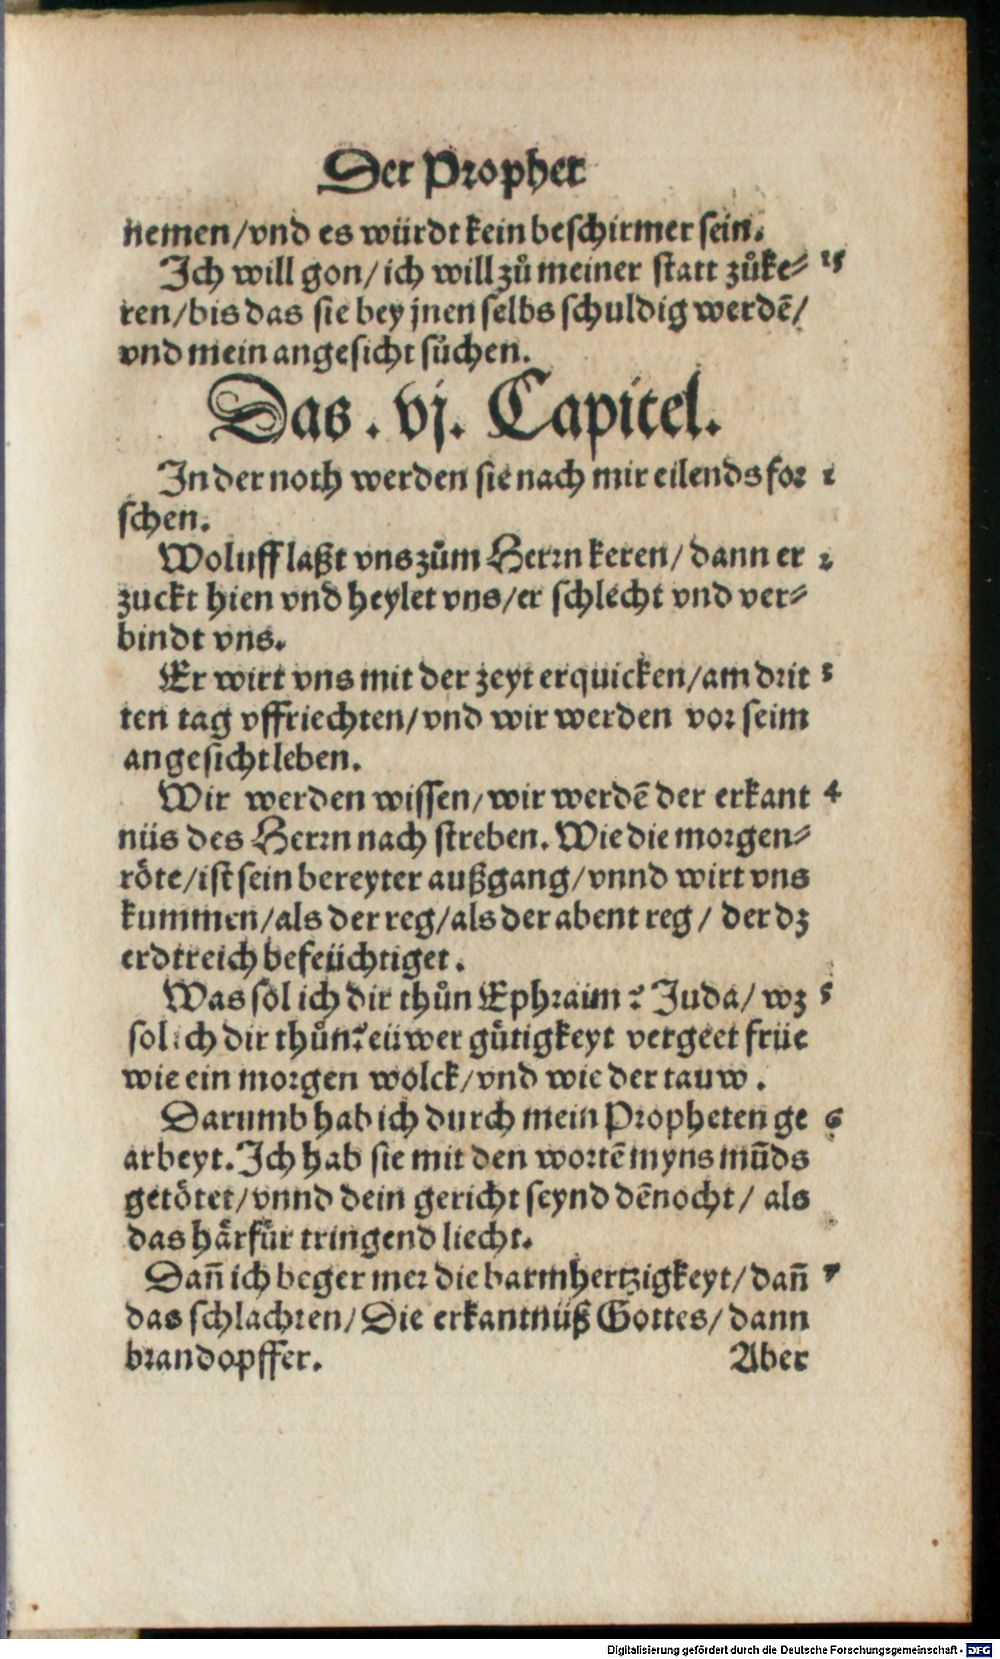 Der Prophet
nemen/vnd es würdt kein beschirmer sein.
Ich will gon/ ich will zů meiner statt zůke⸗ 15
ren/bis das sie bey jnen selbs schuldig werdē/
vnd mein angesicht sůchen.
Das . vj. Capitel.
In der noth werden sie nach mir eilends for 1
schen.
Woluff laßt vns zům Herrn keren/ dann er 2
zuckt hien vnd heylet vns/er schlecht vnd ver⸗
bindt vns.
Er wirt vns mit der zeyt erquicken/am drit 3
ten tag vffriechten/vnd wir werden vor seim
angesicht leben.
Wir werden wissen/wir werdē der erkant 4
nüs des Herrn nach streben. Wie die morgen⸗
röte/ist sein bereyter außgang/vnnd wirt vns
kummen/als der reg/als der abent reg/ der dz
erdtreich befeüchtiget.
Was sol ich dir thůn Ephraim? Juda/ wz 5
sol ich dir thůn? eüwer gůtigkeyt vergeet früe
wie ein morgen wolck/vnd wie der tauw.
Darumb hab ich durch mein Propheten ge 6
arbeyt. Ich hab sie mit den wortē myns mūds
getötet/vnnd dein gericht seynd dēnocht/ als
das härfür tringend liecht.
Dañ ich beger mer die barmhertzigkeyt/dañ 7
das schlachten/Die erkantnüß Gottes/ dann
brandopffer. Aber
Digitalisierung gefördert durch die Deutsche Forschungsgemeinschaft - DFG